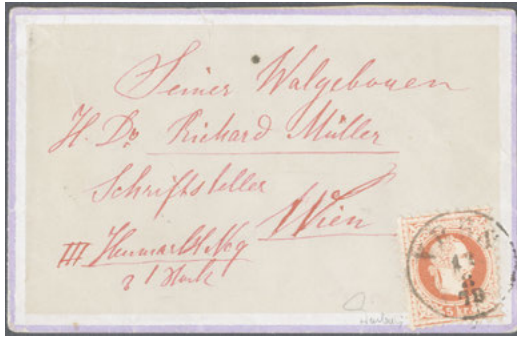 Seiner Walgebouen
H. Dr Richard Müller
Schriftsteller
Wien
III Heumarkt No 9
2 Stock
5 KR